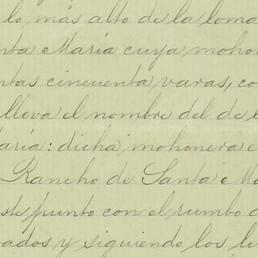 lo más alto de la loma
nta María cuya mohon
ntas cincuenta varas, co
lleva el nombre del de e
aría: dicha mohonera e
Rancho de Santa Ma
ste punto con el rumbo d
ados y siguiendo los li